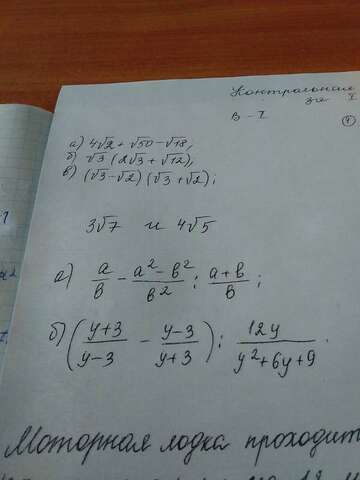 Контрольная
за I
В-I
а) 4√2 + √50 - √18,
б) √3 (2√3 + √12),
в) (√3 - √2) (√3 + √2);
3√7 и 4√5
а) a/b - (a² - b²)/b² : (a + b)/b ;
б) ((y+3)/(y-3) - (y-3)/(y+3)) : 12y/(y²+6y+9)
Моторная лодка проходит